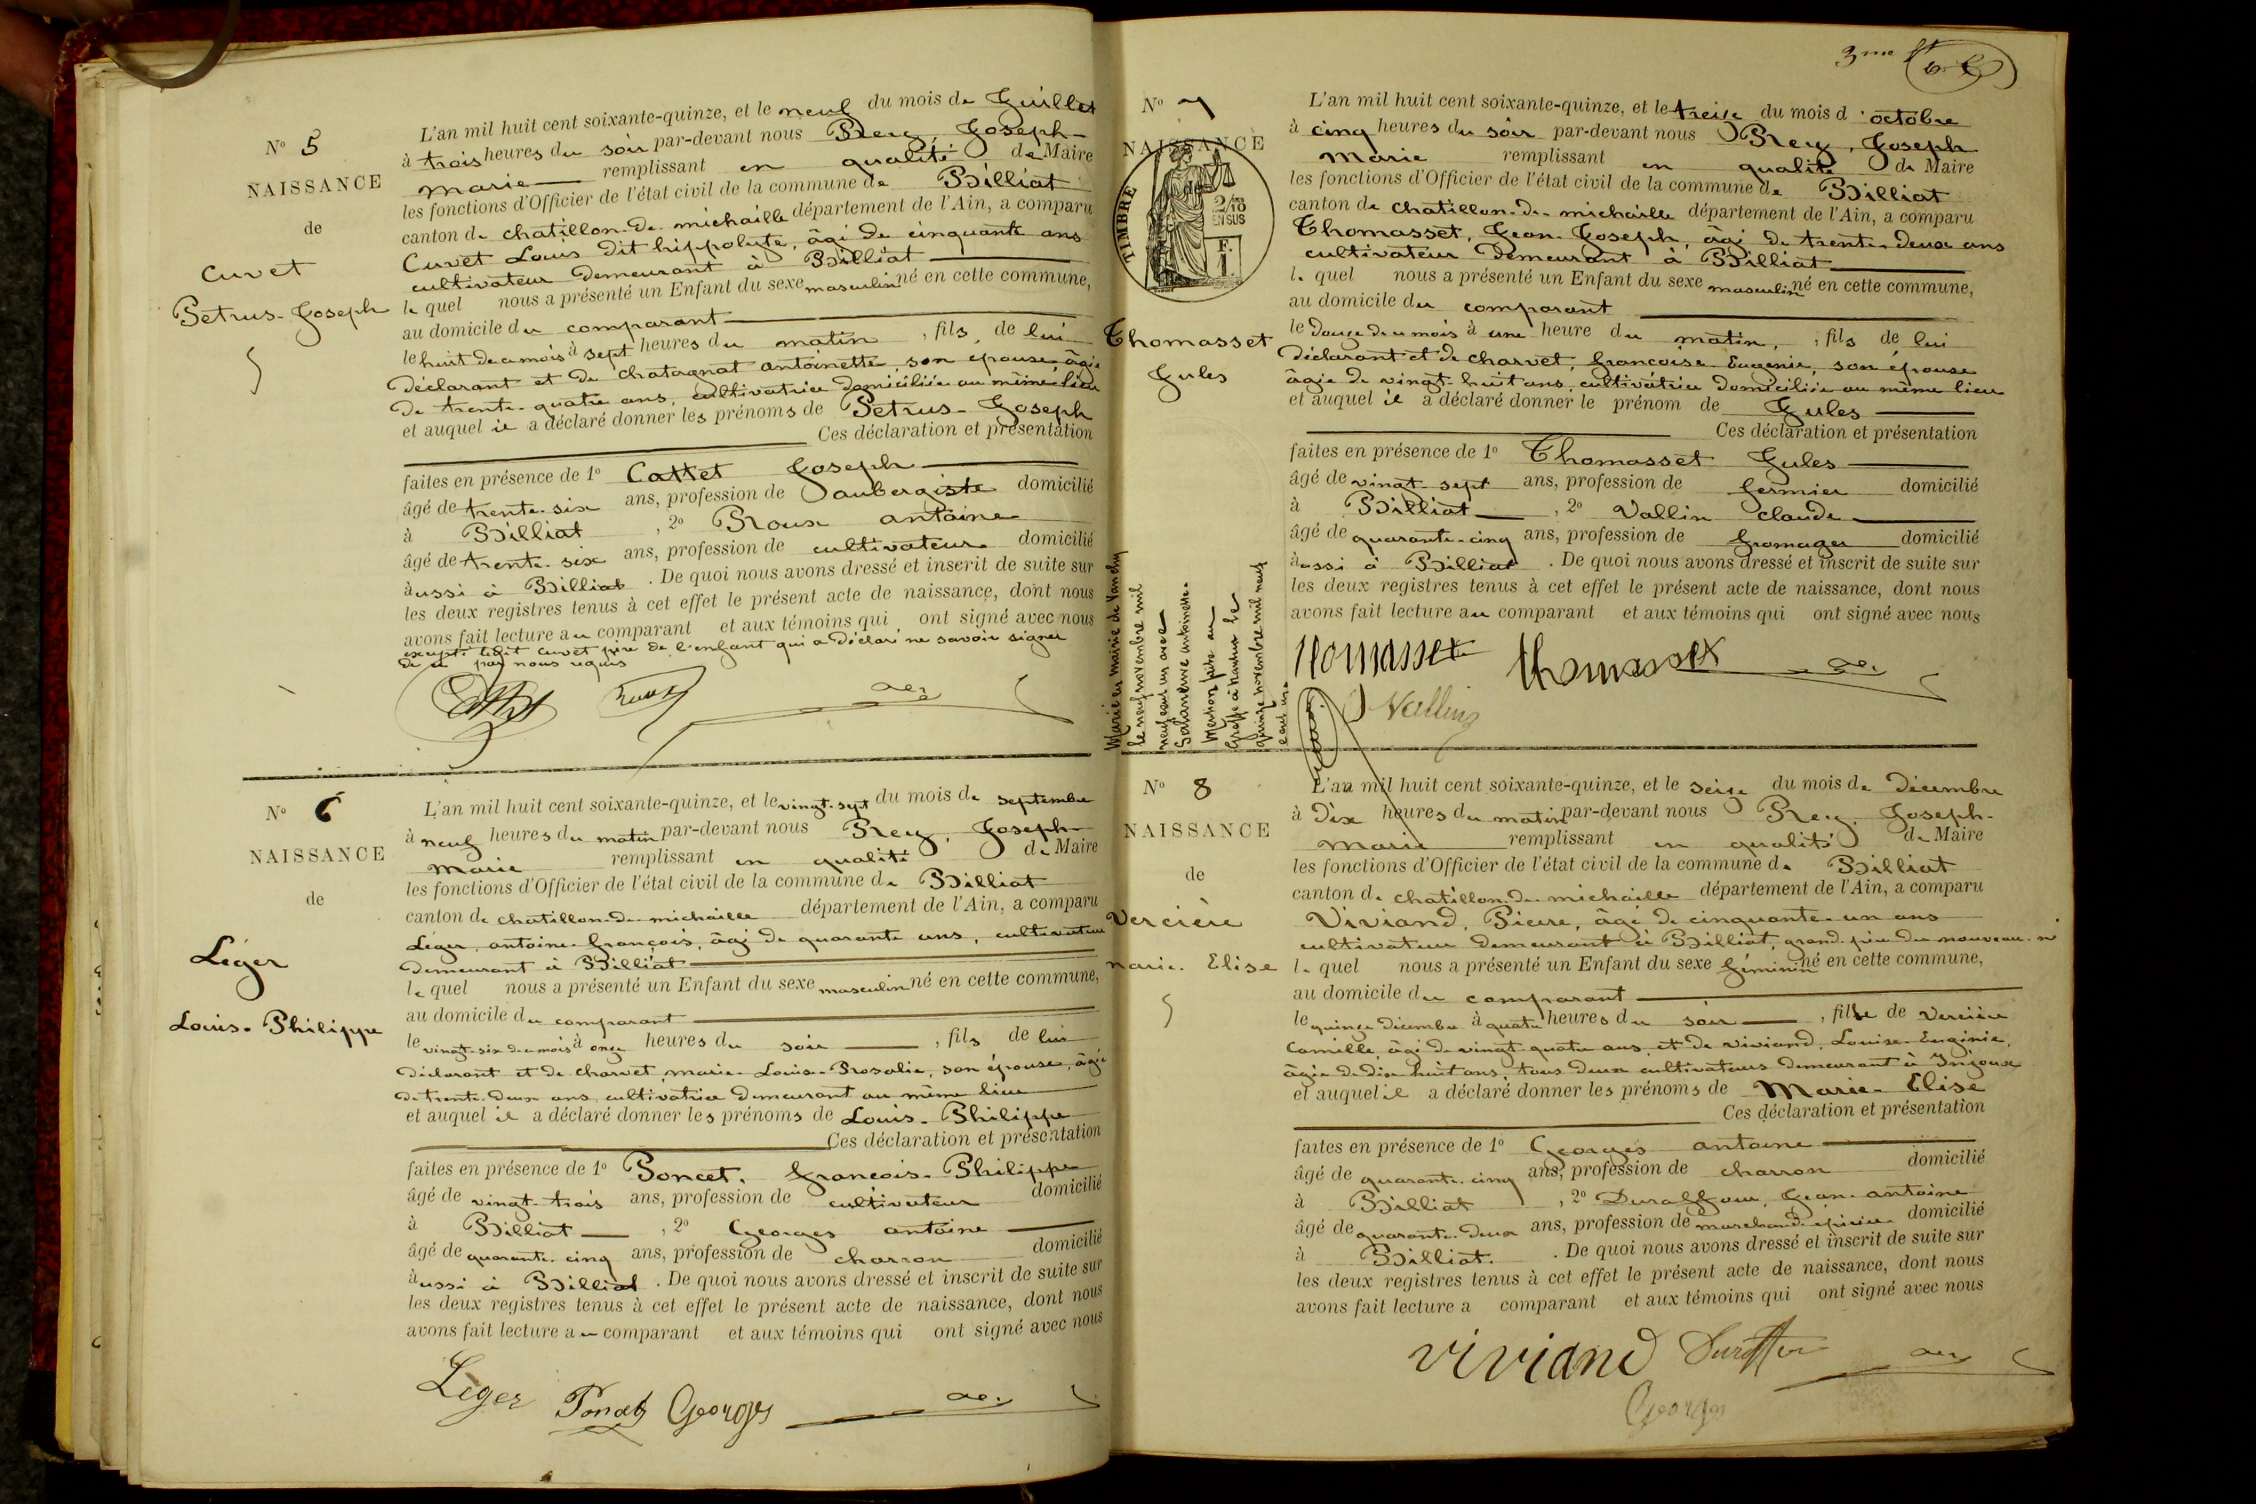 N° 5
NAISSANCE
de
Cuvet
Petrus-Joseph
L'an mil huit cent soixante-quinze, et le neuf du mois de Juillet
à trois heures du soir par-devant nous Rey, Joseph-
Marie remplissant en qualité de Maire
les fonctions d'Officier de l'état civil de la commune de Billiat
canton de chatillon-de-michaille département de l'Ain, a comparu
Cuvet Louis dit hippolyte, âgé de cinquante ans
cultivateur demeurant à Billiat
lequel nous a présenté un Enfant du sexe masculin né en cette commune,
au domicile du comparant
le huit de ce mois à sept heures du matin, fils de lui
déclarant et de Chatagnat antoinette, son épouse, âgée
de trente-quatre ans, cultivatrice domiciliée au même lieu
et auquel il a déclaré donner les prénoms de Petrus-Joseph
Ces déclaration et présentation
faites en présence de 1° Cattet Joseph
âgé de trente-six ans, profession de aubergiste domicilié
à Billiat, 2° Roux antoine
âgé de trente-six ans, profession de cultivateur domicilié
aussi à Billiat. De quoi nous avons dressé et inscrit de suite sur
les deux registres tenus à cet effet le présent acte de naissance, dont nous
avons fait lecture au comparant et aux témoins qui ont signé avec nous
excepté ledit Cuvet père de l'enfant qui a déclaré ne savoir signer
de ce par nous requis
N° 6
NAISSANCE
de
Léger
Louis-Philippe
L'an mil huit cent soixante-quinze, et le vingt-sept du mois de septembre
à neuf heures du matin par-devant nous Rey, Joseph-
Marie remplissant en qualité de Maire
les fonctions d'Officier de l'état civil de la commune de Billiat
canton de chatillon-de-michaille département de l'Ain, a comparu
Léger, antoine-françois, âgé de quarante ans, cultivateur
demeurant à Billiat
lequel nous a présenté un Enfant du sexe masculin né en cette commune,
au domicile du comparant
le vingt-six de ce mois à onze heures du soir, fils de lui
déclarant et de charvet, marie-Louise-Rosalie, son épouse, âgée
de trente-deux ans, cultivatrice demeurant au même lieu
et auquel il a déclaré donner les prénoms de Louis-Philippe
Ces déclaration et présentation
faites en présence de 1° Poncet, françois-Philippe
âgé de vingt-trois ans, profession de cultivateur domicilié
à Billiat, 2° Georges antoine
âgé de quarante-cinq ans, profession de charron domicilié
aussi à Billiat. De quoi nous avons dressé et inscrit de suite sur
les deux registres tenus à cet effet le présent acte de naissance, dont nous
avons fait lecture au comparant et aux témoins qui ont signé avec nous
Léger Poncet Georges
3me
N° 7
NAISSANCE
de
TIMBRE
2/10 EN SUS
F. 1.
Thomasset
Jules
L'an mil huit cent soixante-quinze, et le treize du mois d'octobre
à cinq heures du soir par-devant nous Rey, Joseph
Marie remplissant en qualité de Maire
les fonctions d'Officier de l'état civil de la commune de Billiat
canton de chatillon-de-michaille département de l'Ain, a comparu
Thomasset, Jean-Joseph, âgé de trente-deux ans
cultivateur demeurant à Billiat
lequel nous a présenté un Enfant du sexe masculin né en cette commune,
au domicile du comparant
le douze de ce mois à une heure du matin, fils de lui
déclarant et de charvet, françoise-Eugénie, son épouse
âgée de vingt-huit ans, cultivatrice domiciliée au même lieu
et auquel il a déclaré donner le prénom de Jules
Ces déclaration et présentation
faites en présence de 1° Thomasset Jules
âgé de vingt-sept ans, profession de fermier domicilié
à Billiat, 2° Vallin claude
âgé de quarante-cinq ans, profession de fromager domicilié
aussi à Billiat. De quoi nous avons dressé et inscrit de suite sur
les deux registres tenus à cet effet le présent acte de naissance, dont nous
avons fait lecture au comparant et aux témoins qui ont signé avec nous
Thomasset thomasset
Vallin
Marié en mairie de
le neuf novembre mil
neuf cent un avec
antoinette.
Mention faite au
Greffe à Nantua le
quinze novembre mil neuf
cent un.
N° 8
NAISSANCE
de
Vercière
Marie-Elise
L'an mil huit cent soixante-quinze, et le seize du mois de Décembre
à dix heures du matin par-devant nous Rey, Joseph-
Marie remplissant en qualité de Maire
les fonctions d'Officier de l'état civil de la commune de Billiat
canton de chatillon-de-michaille département de l'Ain, a comparu
Viviand, Pierre, âgé de cinquante-un ans
cultivateur demeurant à Billiat, grand-père du nouveau-né
lequel nous a présenté un Enfant du sexe féminin né en cette commune,
au domicile du comparant
le quinze décembre à quatre heures du soir, fille de Vercière
Camille, âgé de vingt-quatre ans, et de Viviand, Louise-Eugénie,
âgée de dix-huit ans, tous deux cultivateurs demeurant à Injoux
et auquel il a déclaré donner les prénoms de Marie-Elise
Ces déclaration et présentation
faites en présence de 1° Georges antoine
âgé de quarante-cinq ans, profession de charron domicilié
à Billiat, 2° Duraffour, Jean-antoine
âgé de quarante-deux ans, profession de marchand-épicier domicilié
à Billiat. De quoi nous avons dressé et inscrit de suite sur
les deux registres tenus à cet effet le présent acte de naissance, dont nous
avons fait lecture a comparant et aux témoins qui ont signé avec nous
viviand Duraffour
Georges